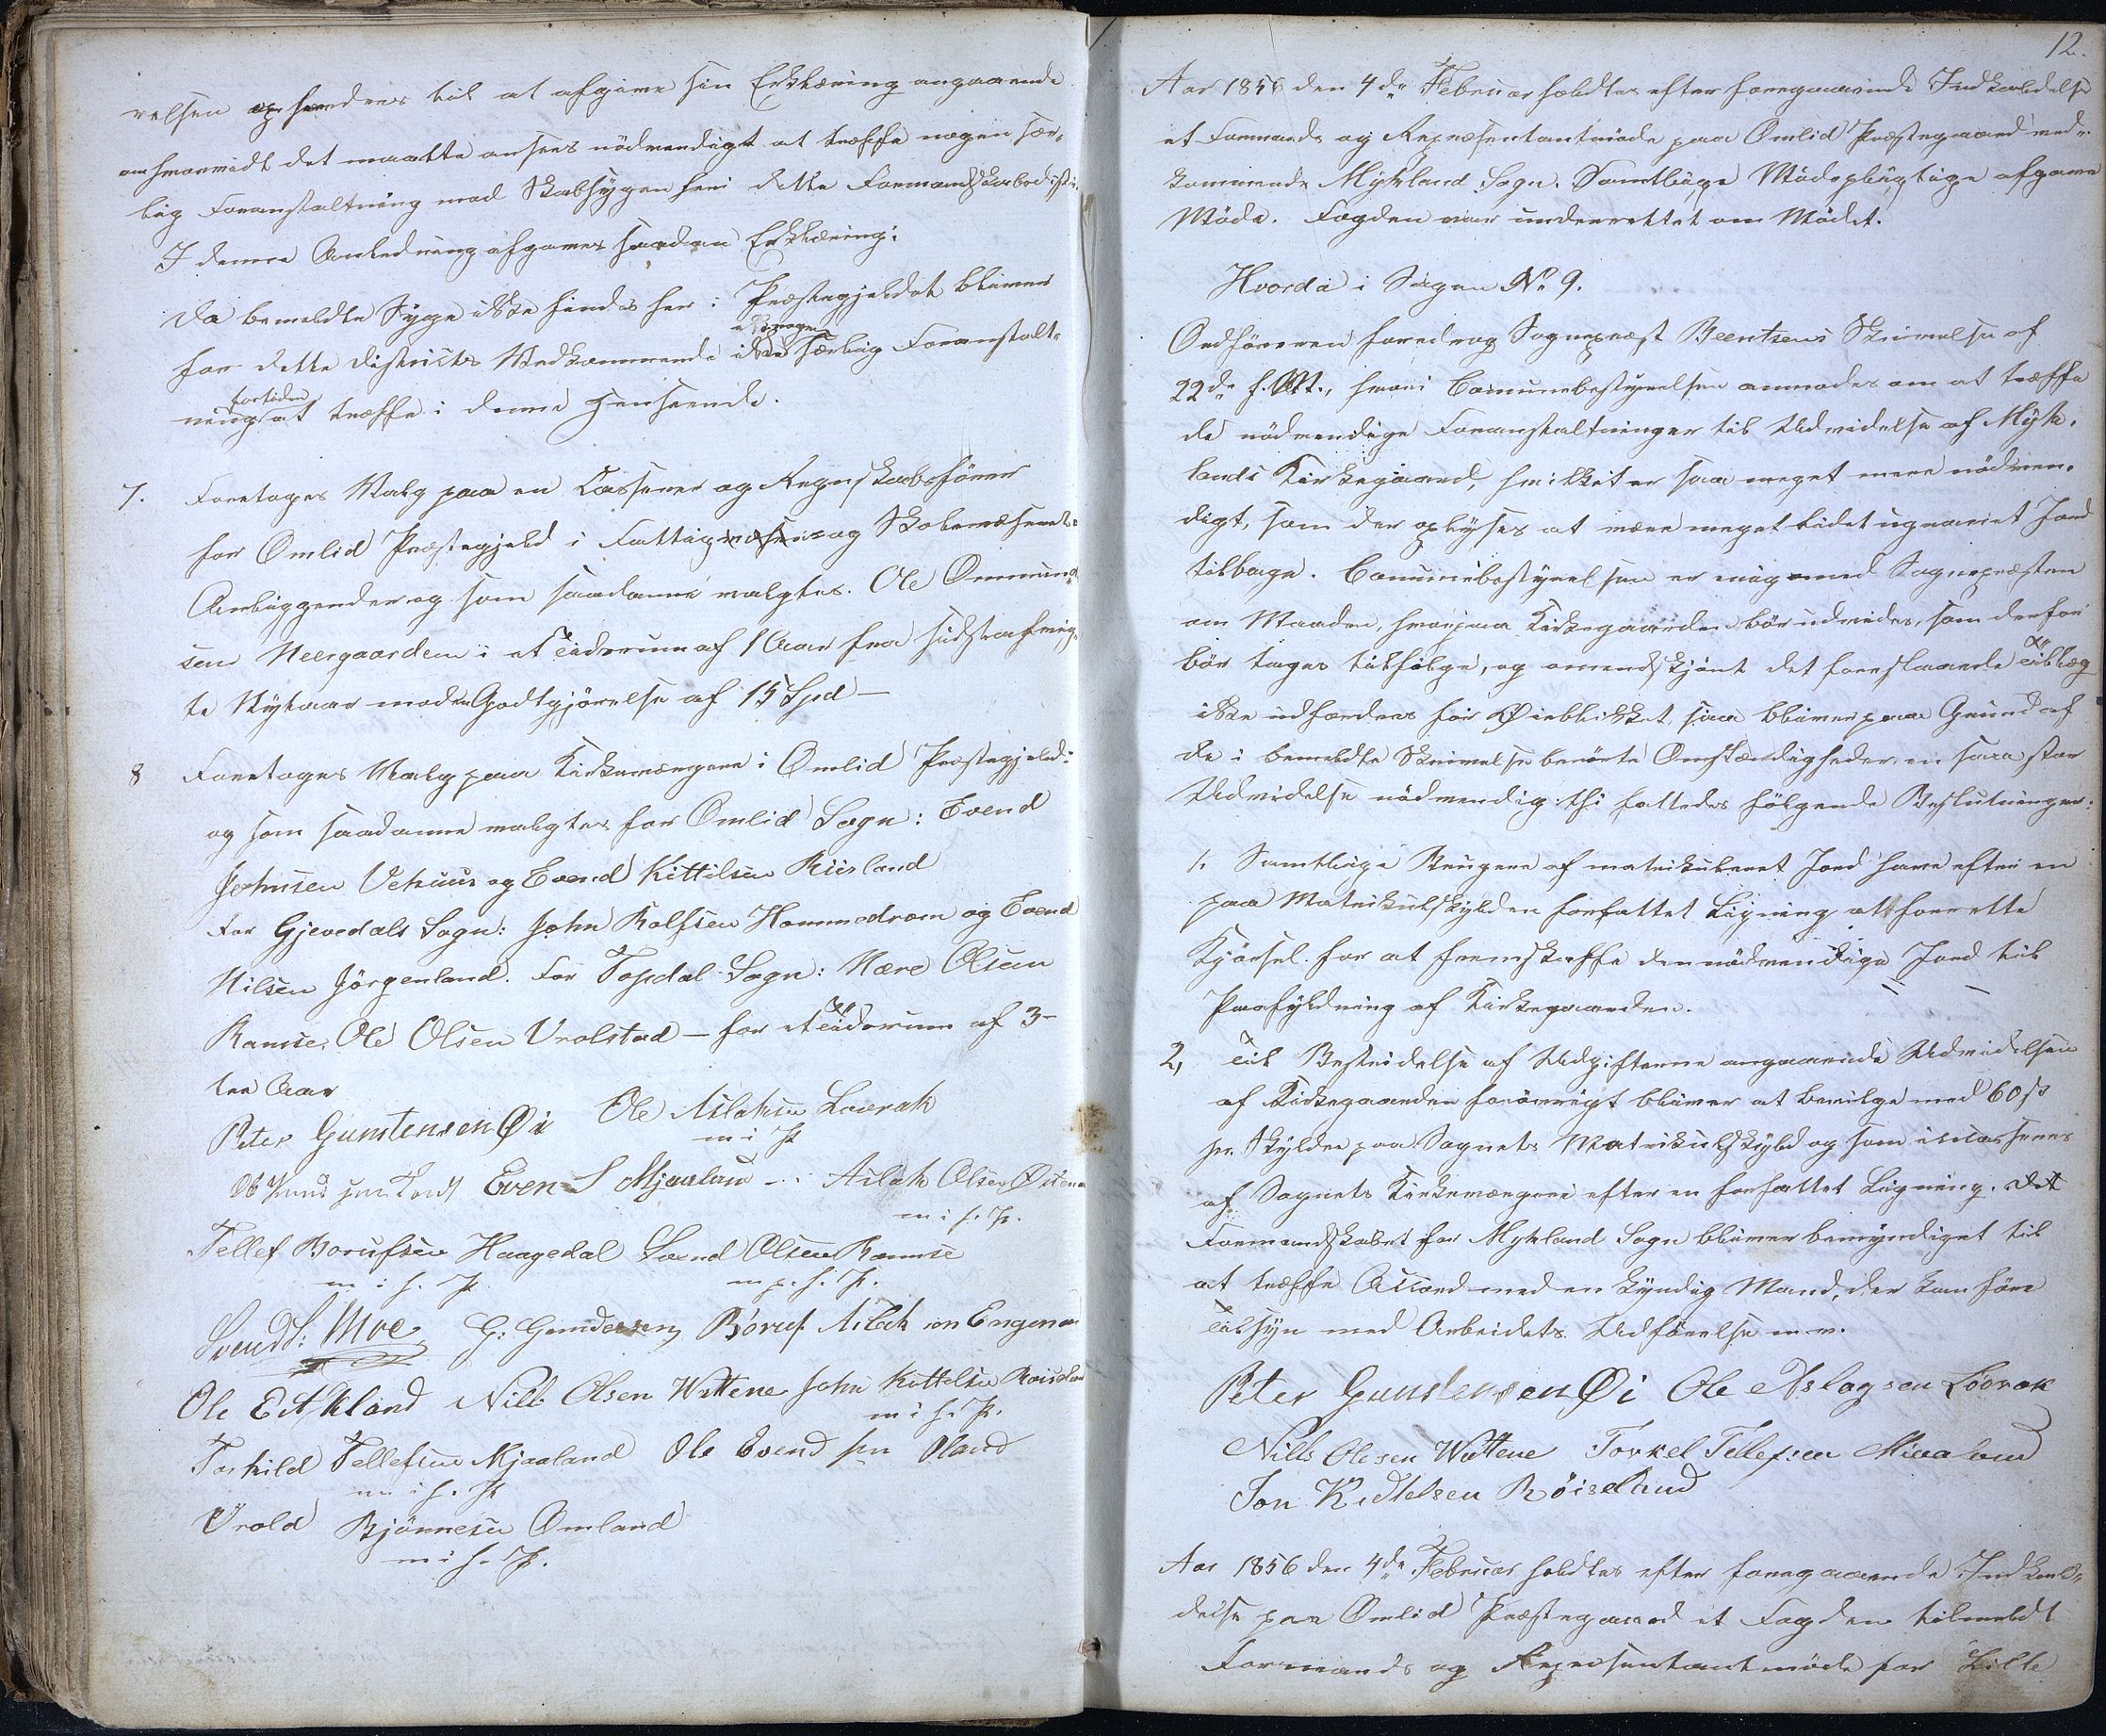 relsen opfordres til at afgive sin Erklæring angaaende
omhvorvidt det maatte ansees nödvendigt at træffe nogen sær-
lig Foranstaltning mod Skabsygen heri dette Formandskabsdistri.
I denne Anledning afgaves saadan Erklæring:
Da bemeldte Syge ikke findes her i Præstegjeldet bliver
for dette Districts Vedkommende ikke nogen særlig Foranstalt-
ning fortiden at træffe i denne Henseende.
7. Foretoges Valg paa en Casserer og Regnskabsförer
for Omlid Præstegjeld i Fattigvæsens og Skolevæsenets
Anliggender og som saadanne valgtes. Ole Ommund-
sen Neergaarden i et Tidsrum af 1 Aar fra sidstafvig-
te Nytaar mod en Godtgjörelse af 15 Spd –
8 Foretoges Valg paa Kirkeværgere i Omlid Præstegjeld:
og som saadanne valgtes for Omlid Sogn: Evend
Johnsen Vehuus og Evend Kittilsen Riisland
For Gjevedals Sogn: John Rolfsen Hommedrom og Evend
Nilsen Jörgenland. For Topdal Sogn: Nære Olsen
Ramse, Ole Olsen Vrolstad – for et Tidsrum af 3 –
tre Aar
Peter Gunstensen Öi Ole Aslaksen Lavrak
m i P
Even S Mjaaland Aslak Olsen
m i h. P.
Tellef Borufsen Haagedal Svend Olsen Ramse
m i h. P m p. h. P.
Svend S: Moe G: Gundersen Boruf Aslaksen Engenes
Ole E Askland Nills Olsen Wattene John Kittelsen Roisland
m i h. P.
Torkild Tellefsen Mjaaland Ole Evendsen Oland
m i h. P
Vrold Bjönnesen Omland
m i h. P.
12.
Aar 1856 den 4de Februar holdtes efter foregaaende Indkaldelse
et Formands og Repræsentantmöde paa Omlid Præstegaard ved-
kommende Mykland Sogn. Samtlige Mödepligtige afgave
Möde. Fogden var underrettet om Mödet.
Hvorda i Sagen No 9.
Ordföreren foredrog Sognepræst Beentsens Skrivelse af
22de f. Mt., hvori Comunebestyrelsen anmodes om at træffe
de nödvendige Foranstaltninger til Udvidelse af Myk-
lands Kirkegaard, hvilket er saa meget mere nödven-
digt, som der oplyses at være meget lidet ugravet Jord
tilbage. Comunebestyrelsen er enig med Sognepræsten
om Maaden, hvorpaa Kirkegaarden bör udvides, som derfor
bör tages tilfölge, og omendskjönt det foreslaaede Tillæg
ikke udfordres for Øieblikket, saa bliver paa Grund af
de i bemeldte Skrivelse berörte Omstændigheder en saa stor
Udvidelse nödvendig: thi fattedes fölgende Beslutninger:
1. Samtlige Brugere af matrikuleret Jord have efter en
paa Matrikulskylden forfattet Ligning at forrette
Kjörsel for at fremskaffe den nödvendige Jord til
Paafyldning af Kirkegaarden.
2, Til Bestridelse af Udgifterne angaaende Udvidelsen
af Kirkegaarden forövrigt bliver at bevilge med 60 s
pr. Skylder paa Sognets Matrikulskyld og som incasseres
af Sognets Kirkeværgere efter en forfattet Ligning. Det
Formandskabet for Mykland Sogn bliver bemyndiget til
at træffe Accord med en kyndig Mand, der kan före
Tilsyn med Arbeidets Udförelse m. v.
Peter Gunstensen Öi Ole Aslagsen Löovrak
Nills Olesen Wattene Torkel Tellefsen Miaaland
Jon Kedtelsen Röiseland
Aar 1856 den 4de Februar holdtes efter foregaaende Indkal-
delse paa Omlid Præstegaard et Fogden tilmeldt
Formands og Repræsentantmöde for Lille